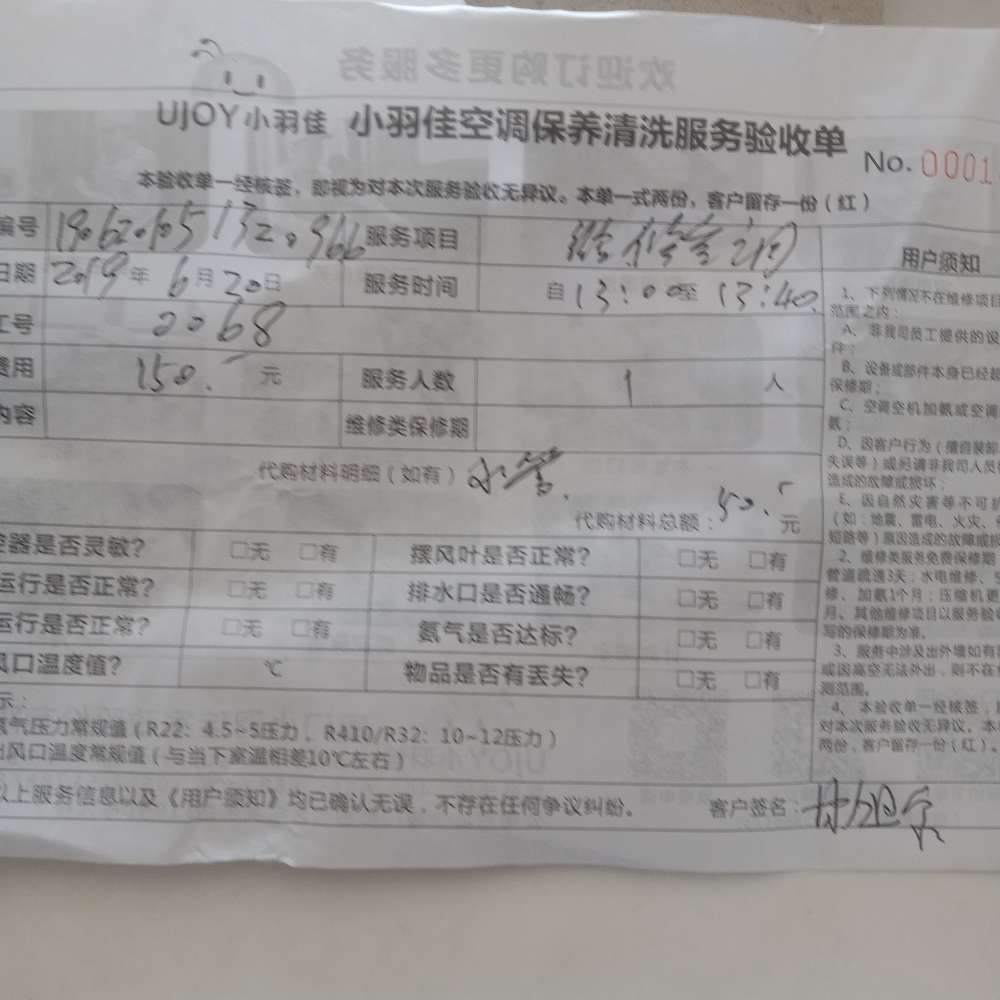 欢迎订购更多服务
UJOY小羽佳 小羽佳空调保养清洗服务验收单
No. 0001
本验收单一经核签，即视为对本次服务验收无异议。本单一式两份，客户留存一份（红）
编号 服务项目
日期 2019年6月20日 服务时间 自13:00至13:40
工号 2068
费用 150. 元 服务人数 1 人
内容 维修类保修期
代购材料明细（如有）
代购材料总额：50. 元
控器是否灵敏? □无 □有 摆风叶是否正常? □无 □有
运行是否正常? □无 □有 排水口是否通畅? □无 □有
运行是否正常? □无 □有 氨气是否达标? □无 □有
风口温度值? ℃ 物品是否有丢失? □无 □有
示：
氨气压力常规值（R22：4.5~5压力，R410/R32：10~12压力）
出风口温度常规值（与当下室温相差10℃左右）
以上服务信息以及《用户须知》均已确认无误，不存在任何争议纠纷。 客户签名：
用户须知
1、下列情况不在维修项目
范围之内：
A、非我司员工提供的设
件；
B、设备或部件本身已经超
保修期；
C、空调空机加氨或空调
氨；
D、因客户行为（擅自装卸
失误等）或另请非我司人员
造成的故障或损坏；
E、因自然灾害等不可抗
（如：地震、雷电、火灾、
短路等）原因造成的故障或损
2、维修类服务免费保修期
管道疏通3天；水电维修、
修、加氨1个月；压缩机更
月。其他维修项目以服务验
写的保修期为准。
3、服务中涉及出外墙如有
或因高空无法外出，则不在
测范围。
4、本验收单一经核签，
对本次服务验收无异议。本
两份，客户留存一份（红）。